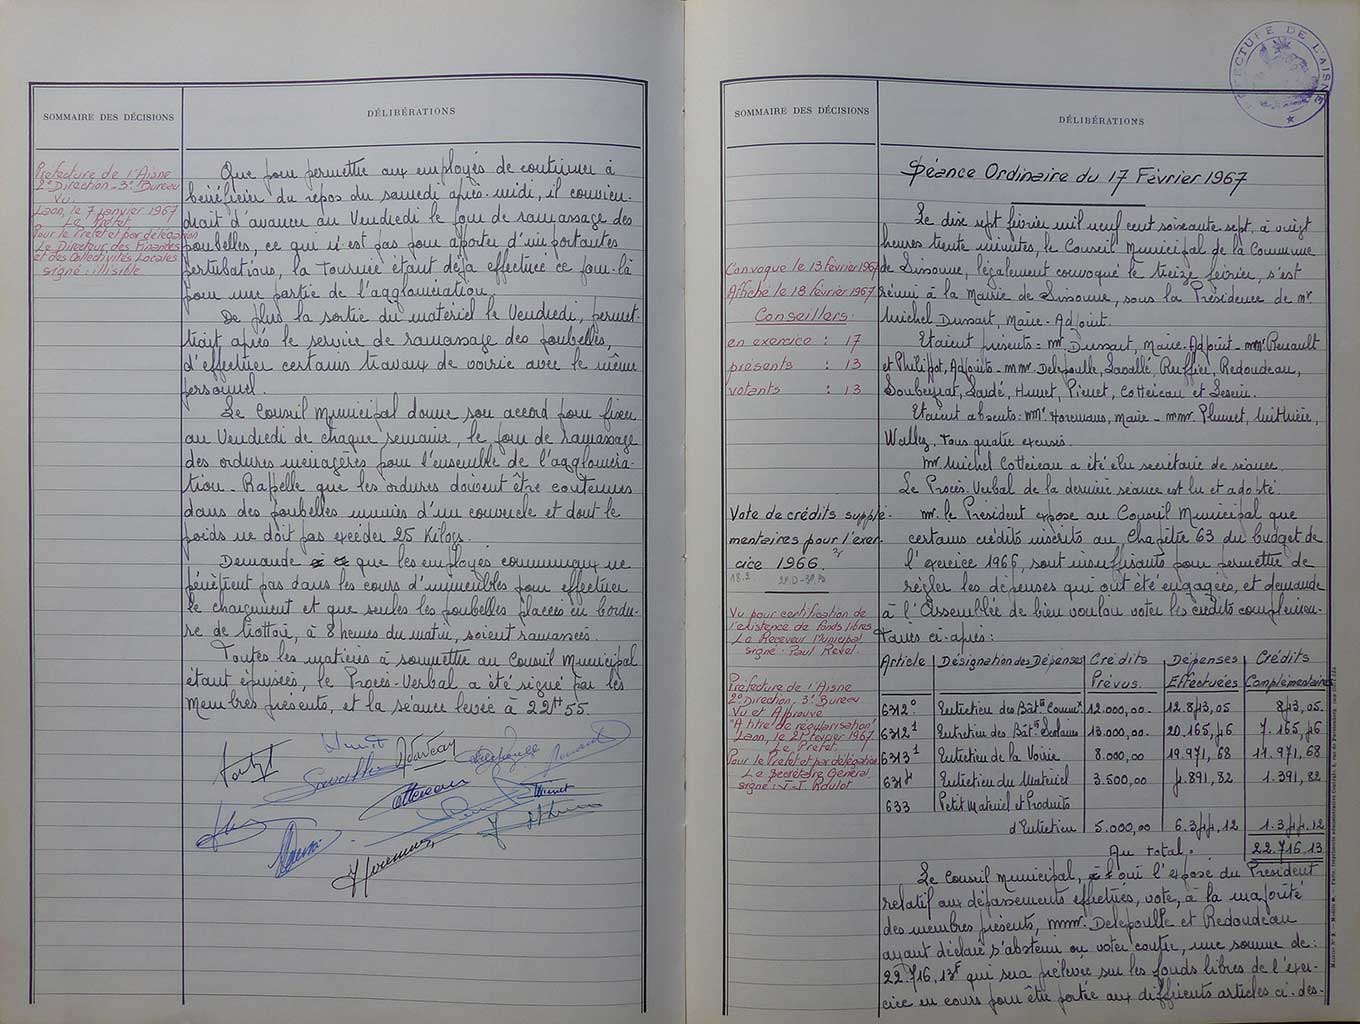 SOMMAIRE DES DÉCISIONS
DÉLIBÉRATIONS
Préfecture de l'Aisne
2° Direction - 3° Bureau
Vu.
Laon, le 7 janvier 1967
Le Préfet
Pour le Préfet et par délégation
Le Directeur des Finances
et des Collectivités Locales
signé : illisible
Que pour permettre aux employés de continuer à
bénéficier du repos du samedi après-midi, il convien-
drait d'avancer au Vendredi le jour de ramassage des
poubelles, ce qui n'est pas pour apporter d'importantes
perturbations, la tournée étant déjà effectuée ce jour-là
pour une partie de l'agglomération.
De plus la sortie du matériel le Vendredi, permet-
trait après le service de ramassage des poubelles,
d'effectuer certains travaux de voirie avec le même
personnel.
Le Conseil Municipal donne son accord pour fixer
au Vendredi de chaque semaine, le jour de ramassage
des ordures ménagères pour l'ensemble de l'aggloméra-
tion - Rappelle que les ordures doivent être contenues
dans des poubelles munies d'un couvercle et dont le
poids ne doit pas excéder 25 Kilogs.
Demande que les employés communaux ne
pénètrent pas dans les cours d'immeubles pour effectuer
le chargement et que seules les poubelles placées en bordu-
re de trottoir, à 8 heures du matin, soient ramassées.
Toutes les matières à soumettre au Conseil Municipal
étant épuisées, le Procès-Verbal a été signé par les
Membres présents, et la séance levée à 22H55.
PREFECTURE DE L'AISNE
SOMMAIRE DES DÉCISIONS
DÉLIBÉRATIONS
Séance Ordinaire du 17 Février 1967
Le dix sept février mil neuf cent soixante sept, à vingt
heures trente minutes, le Conseil Municipal de la Commune
de Sissonne, légalement convoqué le treize février, s'est
réuni à la Mairie de Sissonne, sous la Présidence de Mr
Michel Dussart, Maire-Adjoint.
Convoqué le 13 février 1967
Affiché le 18 février 1967
Conseillers.
en exercice : 17
présents : 13
votants : 13
Etaient présents - Mr. Dussart, Maire-Adjoint - MMrs Renault
et Philippot, Adjoints - MMr. Delepoulle, Lavallé, Ruffier, Redoudeau,
Soubeyrat, Laudé, Hunet, Pierret, Cottereau et
Etaient absents : MMr. Horemans, Maire - MMr. Plumet,
Wallez, tous quatre excusés.
Mr. Michel Cottereau a été élu secrétaire de séance.
Le Procès-Verbal de la dernière séance est lu et adopté.
Vote de crédits supplé-
mentaires pour l'exer-
cice 1966.
Mr. le Président expose au Conseil Municipal que
certains crédits inscrits au Chapitre 63 du budget de
l'exercice 1966, sont insuffisants pour permettre de
régler les dépenses qui ont été engagées, et demande
à l'Assemblée de bien vouloir voter les crédits complémen-
taires ci-après :
Vu pour certification de
l'existence de fonds libres
Le Receveur Municipal
signé : Paul Revel.
Préfecture de l'Aisne
2° Direction, 3° Bureau
Vu et Approuvé
"A titre de régularisation"
Laon, le 21 février 1967
Le Préfet.
Pour le Préfet et par délégation
Le Secrétaire Général
signé : J.J. Roulot
Article Désignation des Dépenses Crédits Prévus. Dépenses Effectuées Crédits Complémentaires
6312° Entretien des Bâts Commx 12.000,00. 12.843,05 843,05.
6312¹ Entretien des Bâts Scolaires 13.000,00. 20.165,46 7.165,46
6313¹ Entretien de la Voirie 8.000,00 19.971,68 11.971,68
6314 Entretien du Matériel 3.500,00 4.891,82 1.391,82
633 Petit Matériel et Produits
d'Entretien 5.000,00 6.344,12 1.344,12
Au total. 22.716,13
Le Conseil Municipal, ouï l'exposé du Président
relatif aux dépassements effectués, vote, à la majorité
des membres présents, MMr. Delepoulle et Redoudeau
ayant déclaré s'abstenir ou voter contre, une somme de :
22.716,13F qui sera prélevée sur les fonds libres de l'exer-
cice en cours pour être portée aux différents articles ci-des-